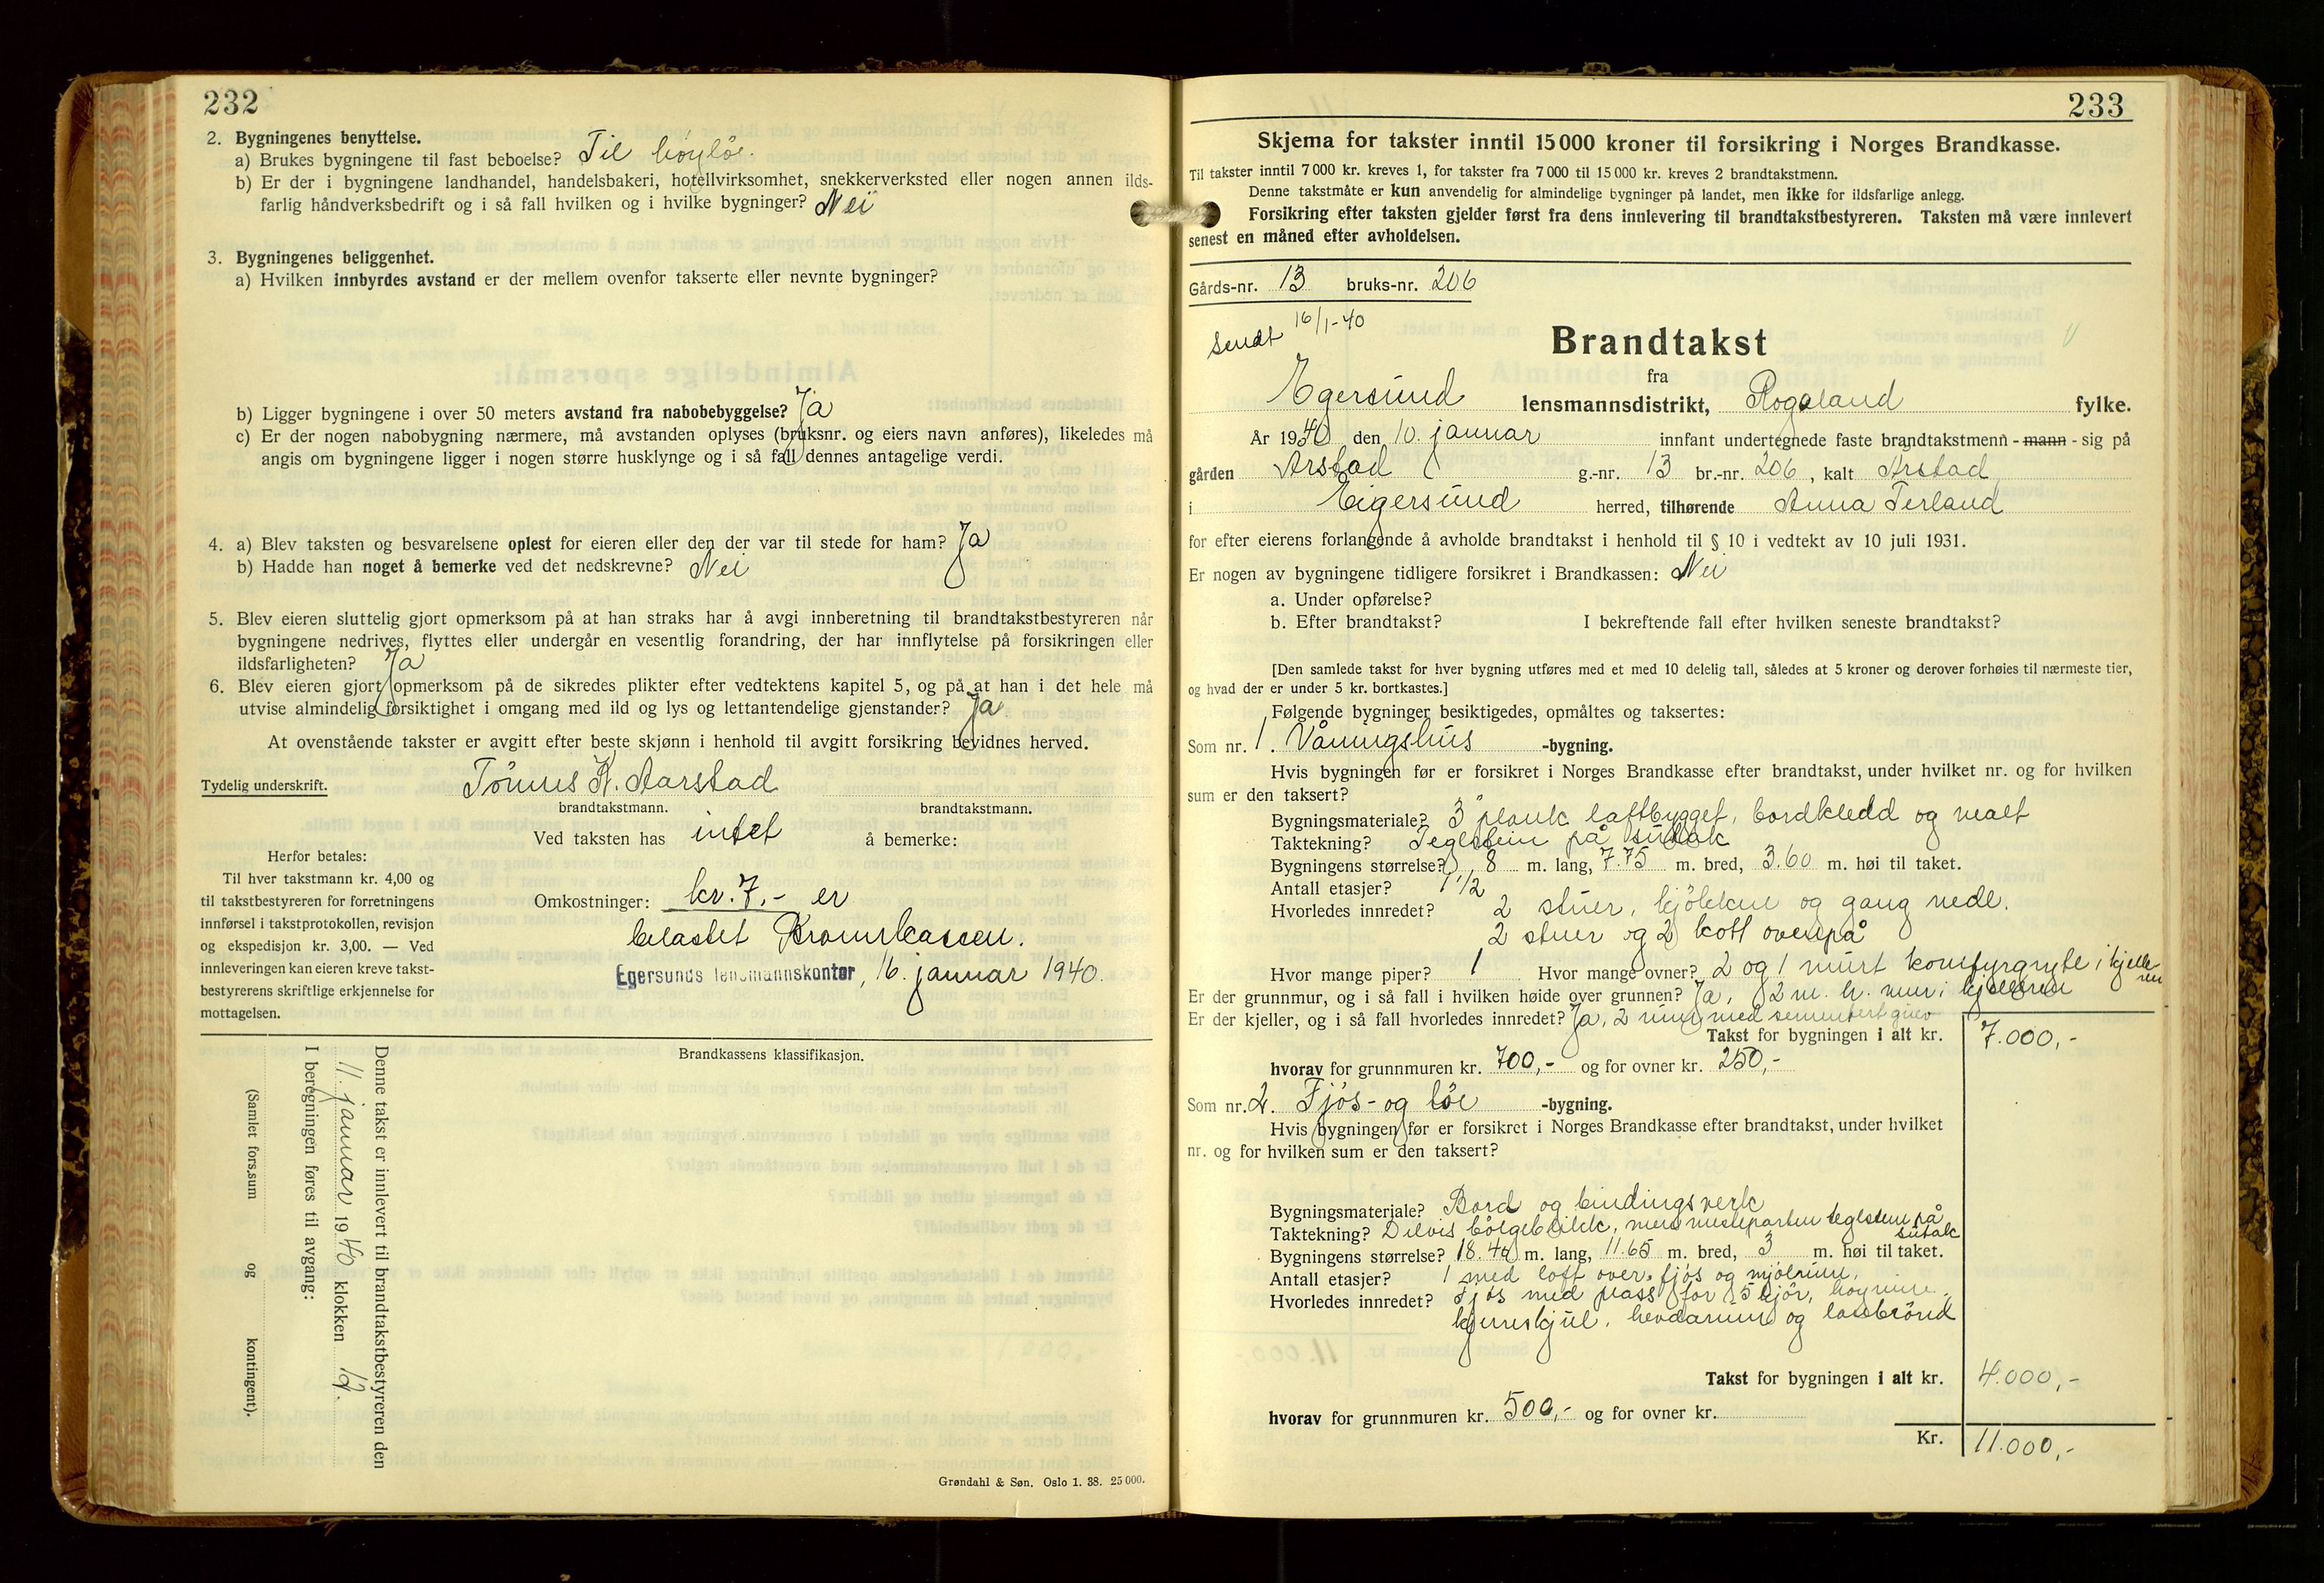 232
2. Bygningenes benyttelse.
a) Brukes bygningene til fast beboelse? Til høyløe.
b) Er der i bygningene landhandel, handelsbakeri, hotellvirksomhet, snekkerverksted eller nogen annen ilds-
farlig håndverksbedrift og i så fall hvilken og i hvilke bygninger? Nei
3. Bygningenes beliggenhet.
a) Hvilken innbyrdes avstand er der mellem ovenfor takserte eller nevnte bygninger?
b) Ligger bygningene i over 50 meters avstand fra nabobebyggelse? Ja
c) Er der nogen nabobygning nærmere, må avstanden oplyses (bruksnr. og eiers navn anføres), likeledes må
angis om bygningene ligger i nogen større husklynge og i så fall dennes antagelige verdi.
4. a) Blev taksten og besvarelsene oplest for eieren eller den der var til stede for ham? Ja
b) Hadde han noget å bemerke ved det nedskrevne? Nei
5. Blev eieren sluttelig gjort opmerksom på at han straks har å avgi innberetning til brandtakstbestyreren når
bygningene nedrives, flyttes eller undergår en vesentlig forandring, der har innflytelse på forsikringen eller
ildsfarligheten? Ja
6. Blev eieren gjort opmerksom på de sikredes plikter efter vedtektens kapitel 5, og på at han i det hele må
utvise almindelig forsiktighet i omgang med ild og lys og lettantendelige gjenstander? Ja
At ovenstående takster er avgitt efter beste skjønn i henhold til avgitt forsikring bevidnes herved.
Tydelig underskrift. Tönnes A. Aarstad
brandtakstmann. brandtakstmann.
Ved taksten has intet å bemerke:
Herfor betales:
Til hver takstmann kr. 4,00 og
til takstbestyreren for forretningens
innførsel i takstprotokollen, revisjon
og ekspedisjon kr. 3,00. — Ved
innleveringen kan eieren kreve takst-
bestyrerens skriftlige erkjennelse for
mottagelsen.
Omkostninger: kr. 7,- er
belastet
Egersunds lensmannskontor, 16. januar 1940.
Brandkassens klassifikasjon.
Denne takst er innlevert til brandtakstbestyreren den
11. januar 1940 klokken 12.
I beregningen føres til avgang:
(Samlet fors.sum og kontingent).
Grøndahl & Søn. Oslo 1. 38. 25 000.
233
Skjema for takster inntil 15 000 kroner til forsikring i Norges Brandkasse.
Til takster inntil 7 000 kr. kreves 1, for takster fra 7 000 til 15 000 kr. kreves 2 brandtakstmenn.
Denne takstmåte er kun anvendelig for almindelige bygninger på landet, men ikke for ildsfarlige anlegg.
Forsikring efter taksten gjelder først fra dens innlevering til brandtakstbestyreren. Taksten må være innlevert
senest en måned efter avholdelsen.
Gårds-nr. 13 bruks-nr. 206
Sendt 16/1-40
Brandtakst
fra
Egersund lensmannsdistrikt, Rogaland fylke.
År 1940 den 10. januar innfant undertegnede faste brandtakstmenn - mann - sig på
gården Arstad g.-nr. 13 br.-nr. 206, kalt Arstad
i Eigersund herred, tilhørende Anna Terland
for efter eierens forlangende å avholde brandtakst i henhold til § 10 i vedtekt av 10 juli 1931.
Er nogen av bygningene tidligere forsikret i Brandkassen: Nei
a. Under opførelse?
b. Efter brandtakst? I bekreftende fall efter hvilken seneste brandtakst?
[Den samlede takst for hver bygning utføres med et med 10 delelig tall, således at 5 kroner og derover forhøies til nærmeste tier,
og hvad der er under 5 kr. bortkastes.]
Følgende bygninger besiktigedes, opmåltes og taksertes:
Som nr. 1. Våningshus -bygning.
Hvis bygningen før er forsikret i Norges Brandkasse efter brandtakst, under hvilket nr. og for hvilken
sum er den taksert?
Bygningsmateriale? 3" plank laftbygget, bordkledd og malt
Taktekning? Teglstein på sutak
Bygningens størrelse? 8 m. lang, 7.75 m. bred, 3.60 m. høi til taket.
Antall etasjer? 1 1/2
Hvorledes innredet? 2 stuer, kjökken og gang nede.
2 stuer og 2 kott ovenpå
Hvor mange piper? 1 Hvor mange ovner? 2 og 1 murt komfyrgryte i kjelle
ren
Er der grunnmur, og i så fall i hvilken høide over grunnen? Ja, 2 m. h. mur i kjelleren
Er der kjeller, og i så fall hvorledes innredet? Ja, 2 rum med sementert gulv
Takst for bygningen i alt kr. 7.000,-
hvorav for grunnmuren kr. 700,- og for ovner kr. 250,-
Som nr. 2. Fjös- og löe -bygning.
Hvis bygningen før er forsikret i Norges Brandkasse efter brandtakst, under hvilket
nr. og for hvilken sum er den taksert?
Bygningsmateriale? Bord og bindingsverk
Taktekning? Delvis bölgeblikk, men mesteparten teglstein på
sutak
Bygningens størrelse? 18.40 m. lang, 11.65 m. bred, 3 m. høi til taket.
Antall etasjer? 1 med loft over fjös og mjölrum.
Hvorledes innredet? Fjös med plass for 5 kjör, høyrum,
og
Takst for bygningen i alt kr. 4.000,-
hvorav for grunnmuren kr. 500,- og for ovner kr.
Kr. 11.000,-